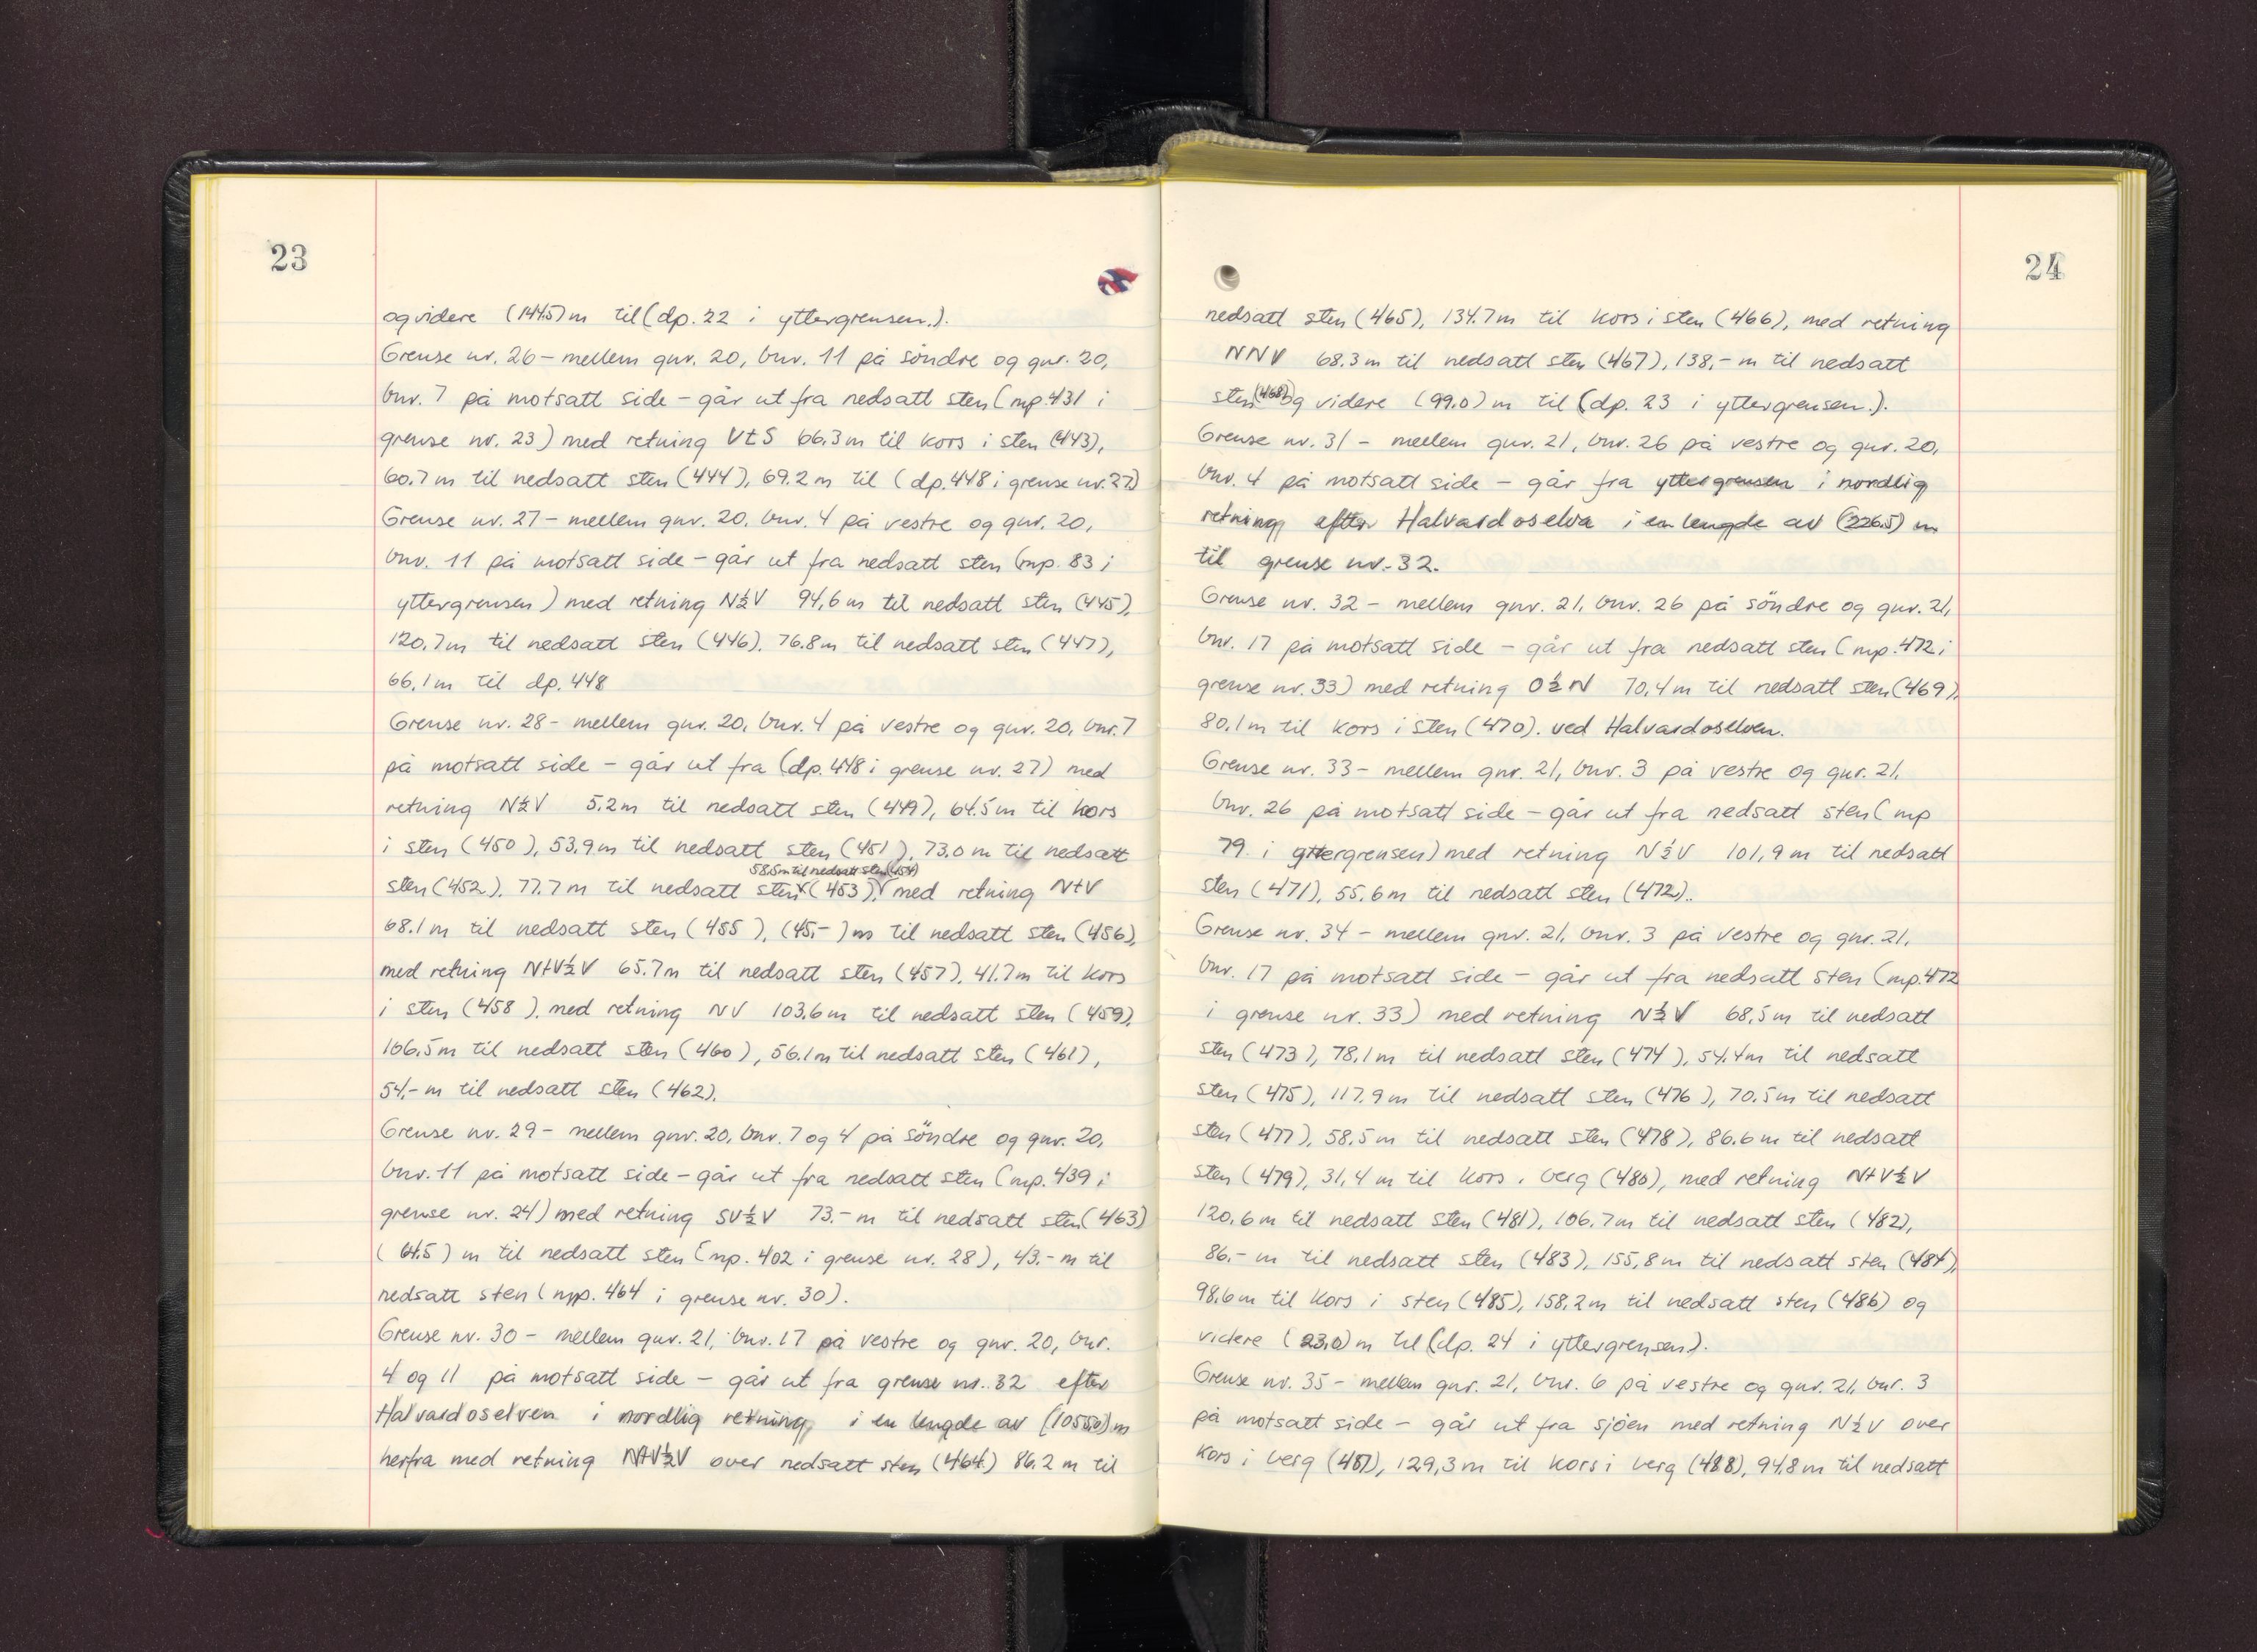 23
og videre (144.5) m til (dp. 22 i yttergrensen.).
Grense nr. 26 - mellem gnr. 20, bnr. 11 på söndre og gnr. 20,
bnr. 7 på motsatt side - går ut fra nedsatt sten (mp. 431 i
grense nr. 23) med retning VtS 66.3 m til kors i sten (443),
60.7 m til nedsatt sten (444), 69.2 m til (dp. 448 i grense nr. 27)
Grense nr. 27 - mellem gnr. 20, bnr. 4 på vestre og gnr. 20,
bnr. 11 på motsatt side - går ut fra nedsatt sten (mp. 83 i
yttergrensen) med retning N½V 94,6 m til nedsatt sten (445),
120.7 m til nedsatt sten (446), 76.8 m til nedsatt sten (447),
66.1 m til dp. 448
Grense nr. 28 - mellem gnr. 20, bnr. 4 på vestre og gnr. 20, bnr. 7
på motsatt side - går ut fra (dp. 448 i grense nr. 27) med
retning N½V 5.2 m til nedsatt sten (449), 64.5 m til kors
i sten (450), 53.9 m til nedsatt sten (451), 73.0 m til nedsatt
58.5 m til nedsatt sten (454)
sten (452), 77.7 m til nedsatt sten (453), med retning NtV
68.1 m til nedsatt sten (455), (45.-) m til nedsatt sten (456),
med retning NtV½V 65.7 m til nedsatt sten (457), 41.7 m til kors
i sten (458), med retning NV 103.6 m til nedsatt sten (459),
106.5 m til nedsatt sten (460), 56.1 m til nedsatt sten (461),
54.- m til nedsatt sten (462).
Grense nr. 29 - mellem gnr. 20, bnr. 7 og 4 på söndre og gnr. 20,
bnr. 11 på motsatt side - går ut fra nedsatt sten (mp. 439 i
grense nr. 24) med retning SV½V 73.- m til nedsatt sten (463)
(64.5) m til nedsatt sten (mp. 402 i grense nr. 28), 43.- m til
nedsatt sten (mp. 464 i grense nr. 30).
Grense nr. 30 - mellem gnr. 21, bnr. 17 på vestre og gnr. 20, bnr.
4 og 11 på motsatt side - går ut fra grense nr. 32 efter
Halvardoselven i nordlig retning, i en lengde av m
herfra med retning NtV½V over nedsatt sten (464) 86.2 m til
24
nedsatt sten (465), 134.7 m til kors i sten (466), med retning
NNV 68.3 m til nedsatt sten (467), 138,- m til nedsatt
sten (468) og videre (99.0) m til (dp. 23 i yttergrensen.).
Grense nr. 31 - mellem gnr. 21, bnr. 26 på vestre og gnr. 20,
bnr. 4 på motsatt side - går fra yttergrensen i nordlig
retning efter Halvardoselva i en lengde av (226.5) m
til grense nr. 32.
Grense nr. 32 - mellem gnr. 21, bnr. 26 på söndre og gnr. 21,
bnr. 17 på motsatt side - går ut fra nedsatt sten (mp. 472 i
grense nr. 33) med retning O½N 70,4 m til nedsatt sten (469),
80.1 m til kors i sten (470). ved Halvardoselven.
Grense nr. 33 - mellem gnr. 21, bnr. 3 på vestre og gnr. 21,
bnr. 26 på motsatt side - går ut fra nedsatt sten (mp
79 i yttergrensen) med retning N½V 101,9 m til nedsatt
sten (471), 55.6 m til nedsatt sten (472).
Grense nr. 34 - mellem gnr. 21, bnr. 3 på vestre og gnr. 21,
bnr. 17 på motsatt side - går ut fra nedsatt sten (mp. 472
i grense nr. 33) med retning N½V 68,5 m til nedsatt
sten (473), 78,1 m til nedsatt sten (474), 54.4 m til nedsatt
sten (475), 117.9 m til nedsatt sten (476), 70.5 m til nedsatt
sten (477), 58.5 m til nedsatt sten (478), 86.6 m til nedsatt
sten (479), 31,4 m til kors i berg (480), med retning NtV½V
120.6 m til nedsatt sten (481), 106.7 m til nedsatt sten (482),
86.- m til nedsatt sten (483), 155,8 m til nedsatt sten (484),
98.6 m til kors i sten (485), 158.2 m til nedsatt sten (486) og
videre (23.0) m til (dp. 24 i yttergrensen).
Grense nr. 35 - mellem gnr. 21, bnr. 6 på vestre og gnr. 21, bnr. 3
på motsatt side - går ut fra sjöen med retning N½V over
kors i berg (487), 129,3 m til kors i berg (488), 94.8 m til nedsatt